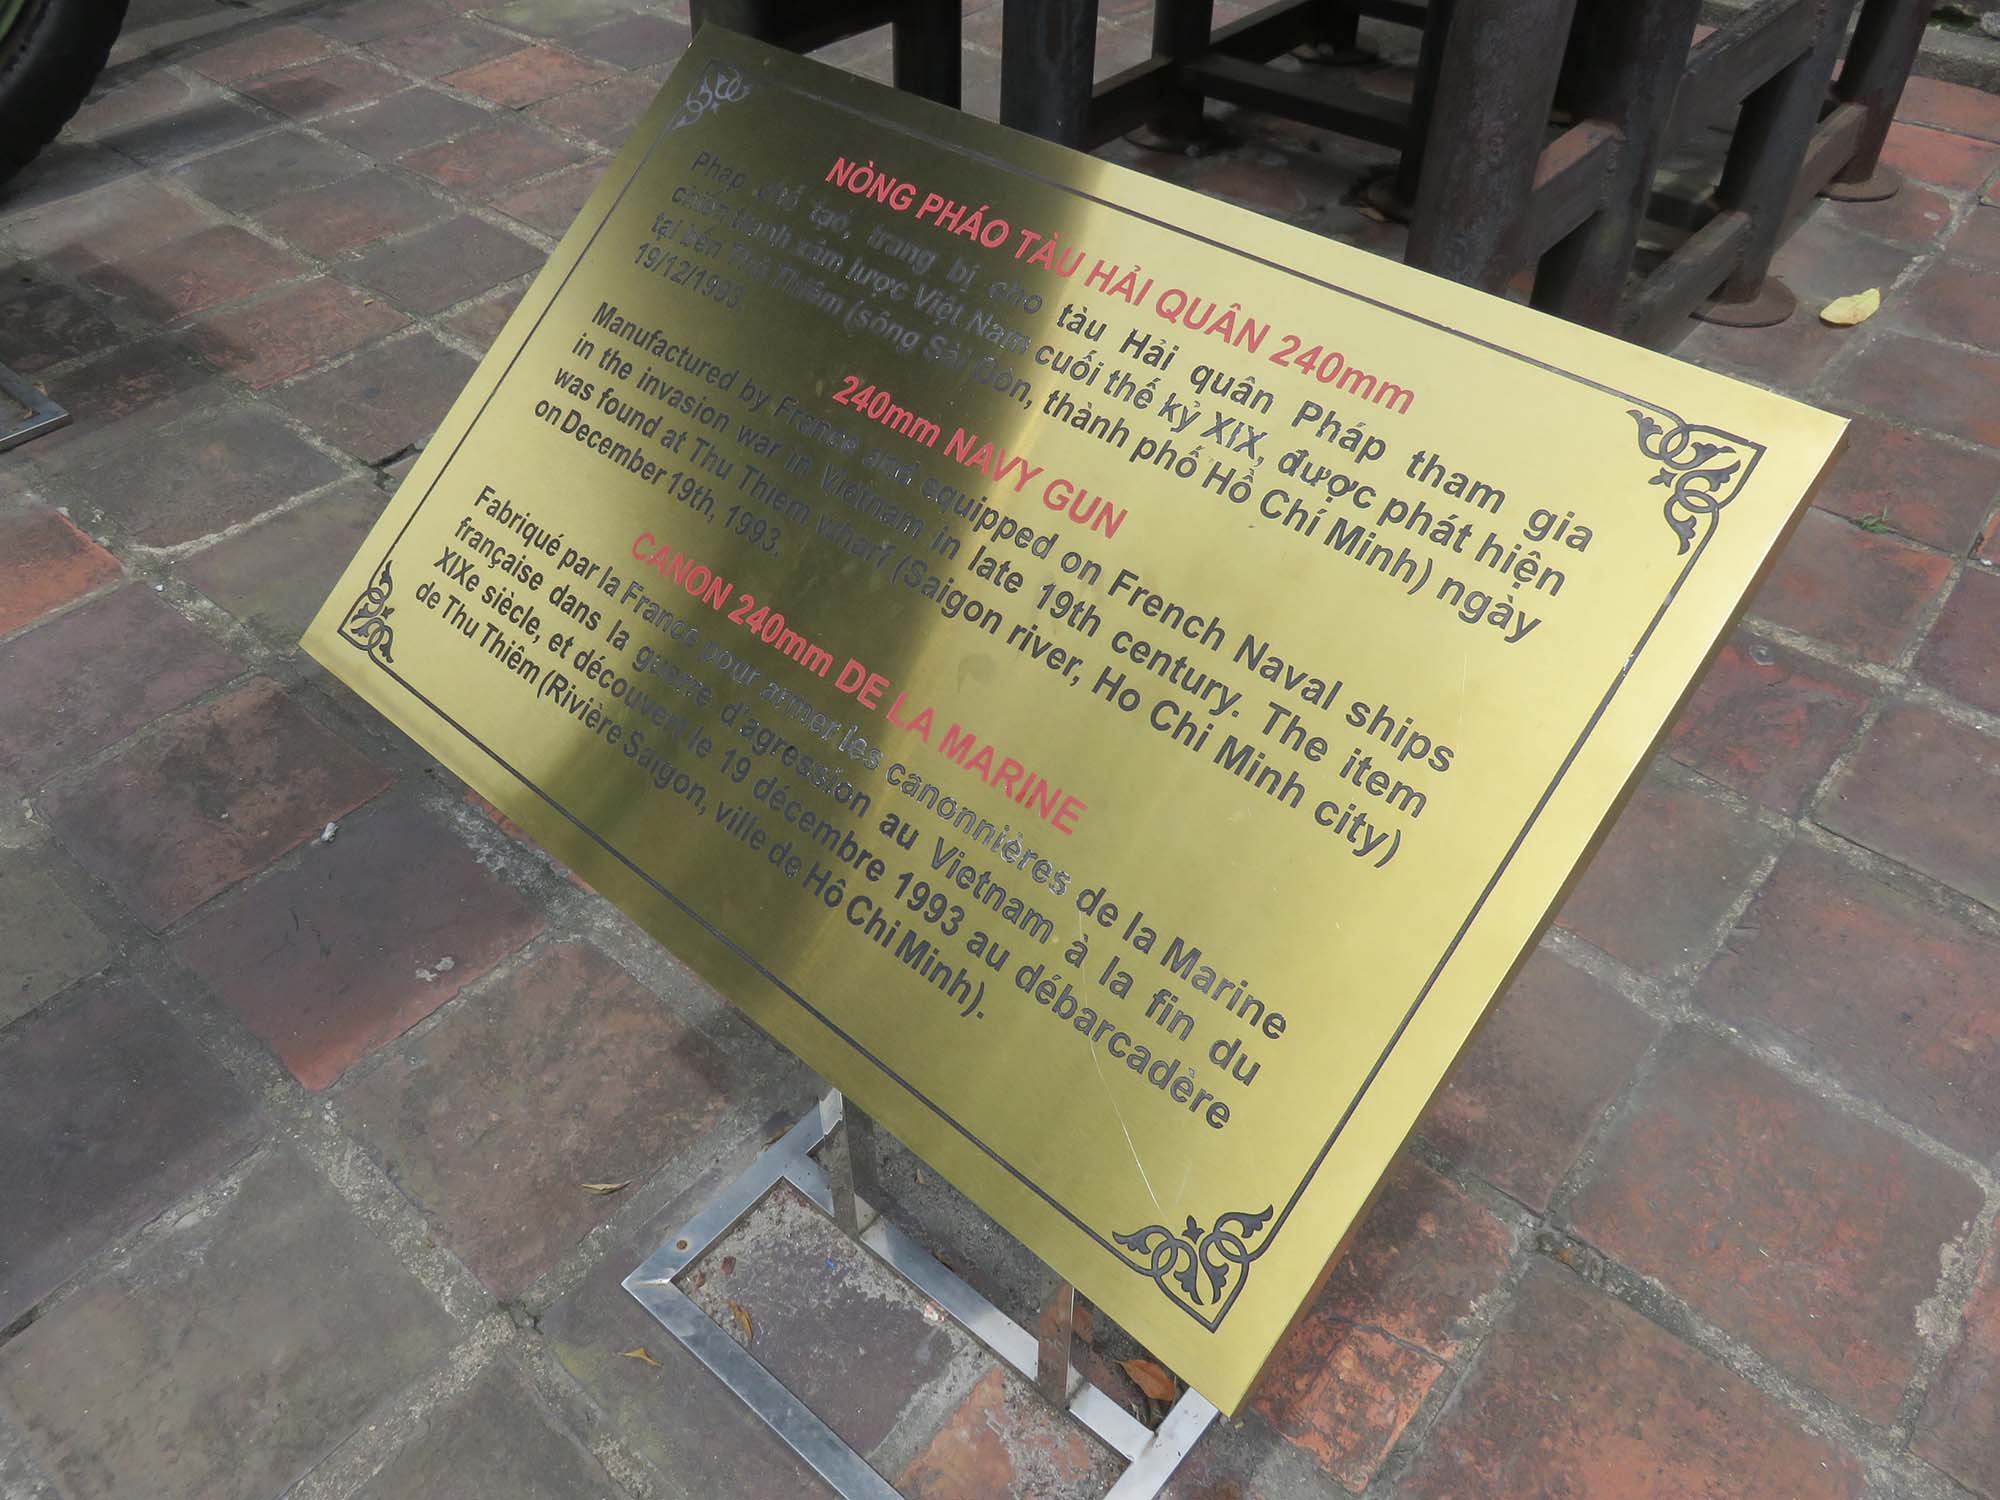 NÒNG PHÁO TÀU HẢI QUÂN 240mm
Pháp chế tạo, trang bị cho tàu Hải quân Pháp tham gia
chiến tranh xâm lược Việt Nam cuối thế kỷ XIX, được phát hiện
tại bến Thủ Thiêm (sông Sài Gòn, thành phố Hồ Chí Minh) ngày
19/12/1993.
240mm NAVY GUN
Manufactured by France and equipped on French Naval ships
in the invasion war in Vietnam in late 19th century. The item
was found at Thu Thiem wharf (Saigon river, Ho Chi Minh city)
on December 19th, 1993.
CANON 240mm DE LA MARINE
Fabriqué par la France pour armer les canonnières de la Marine
française dans la guerre d'agression au Vietnam à la fin du
XIXe siècle, et découvert le 19 décembre 1993 au débarcadère
de Thu Thiêm (Rivière Saigon, ville de Hô Chi Minh).